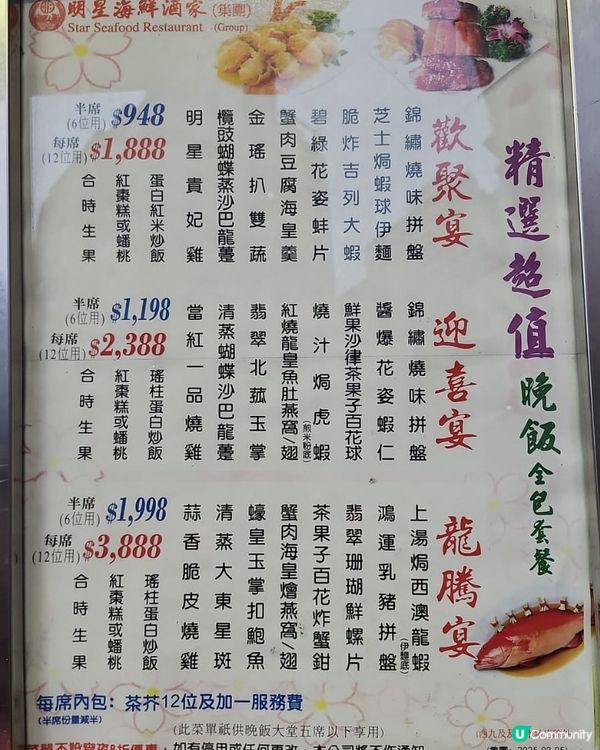 明星海鮮酒家 (集團)
Star Seafood Restaurant (Group)
精選超值晚飯全包套餐
歡聚宴
錦繡燒味拼盤
芝士焗蝦球伊麵
脆炸吉列大蝦
碧綠花姿蚌片
蟹肉豆腐海皇羹
金瑤扒雙蔬
欖豉蝴蝶蒸沙巴龍躉
明星貴妃雞
蛋白紅米炒飯
紅棗糕或蟠桃
合時生果
半席 (6位用) $948
每席 (12位用) $1,888
迎喜宴
錦繡燒味拼盤
醬爆花姿蝦仁
鮮果沙律茶果子百花球
燒汁焗虎蝦 (煎米粉底)
紅燒龍皇魚肚燕窩/翅
翡翠北菰玉掌
清蒸蝴蝶沙巴龍躉
當紅一品燒雞
瑤柱蛋白炒飯
紅棗糕或蟠桃
合時生果
半席 (6位用) $1,198
每席 (12位用) $2,388
龍騰宴
上湯焗西澳龍蝦 (伊麵底)
鴻運乳豬拼盤
翡翠珊瑚鮮螺片
茶果子百花炸蟹鉗
蟹肉海皇燴燕窩/翅
蠔皇玉掌扣鮑魚
清蒸大東星斑
蒜香脆皮燒雞
瑤柱蛋白炒飯
紅棗糕或蟠桃
合時生果
半席 (6位用) $1,998
每席 (12位用) $3,888
每席內包：茶芥12位及加一服務費
(半席份量減半)
(此菜單祇供晚飯大堂五席以下享用)
U Community